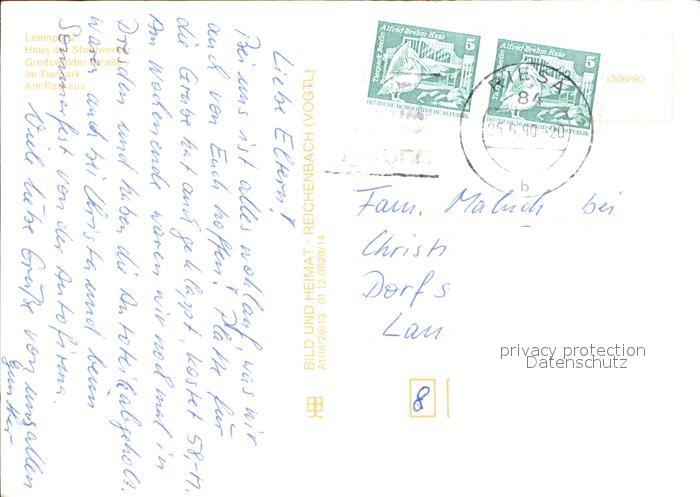 Leninplatz
Haus des
Greifswalder Straße
Im Tierpark
Am Rathaus
Liebe Eltern!
Bei uns ist alles wohlauf, was wir
auch von Euch hoffen. Platte für
die Grube hat auch geklappt, kostet 58,-M.
Am Wochenende waren wir noch mal in
Dresden und haben die Autoteile abgeholt.
Waren auch bei Christa und beim
Sommerfest von der Autofirma.
Viele liebe Grüße von uns allen
Günther
BILD UND HEIMAT · REICHENBACH (VOGTL)
A1/III/26/13 01 12 0629/14
Tierpark Berlin Alfred-Brehm-Haus 5
DEUTSCHE DEMOKRATISCHE REPUBLIK
Tierpark Berlin Alfred-Brehm-Haus 5
DEUTSCHE DEMOKRATISCHE REPUBLIK
RIESA
84
25.6.90-20
b
(306/90
Fam. Maluch bei
Christi
Dorfs
Lau
8
privacy protection
Datenschutz